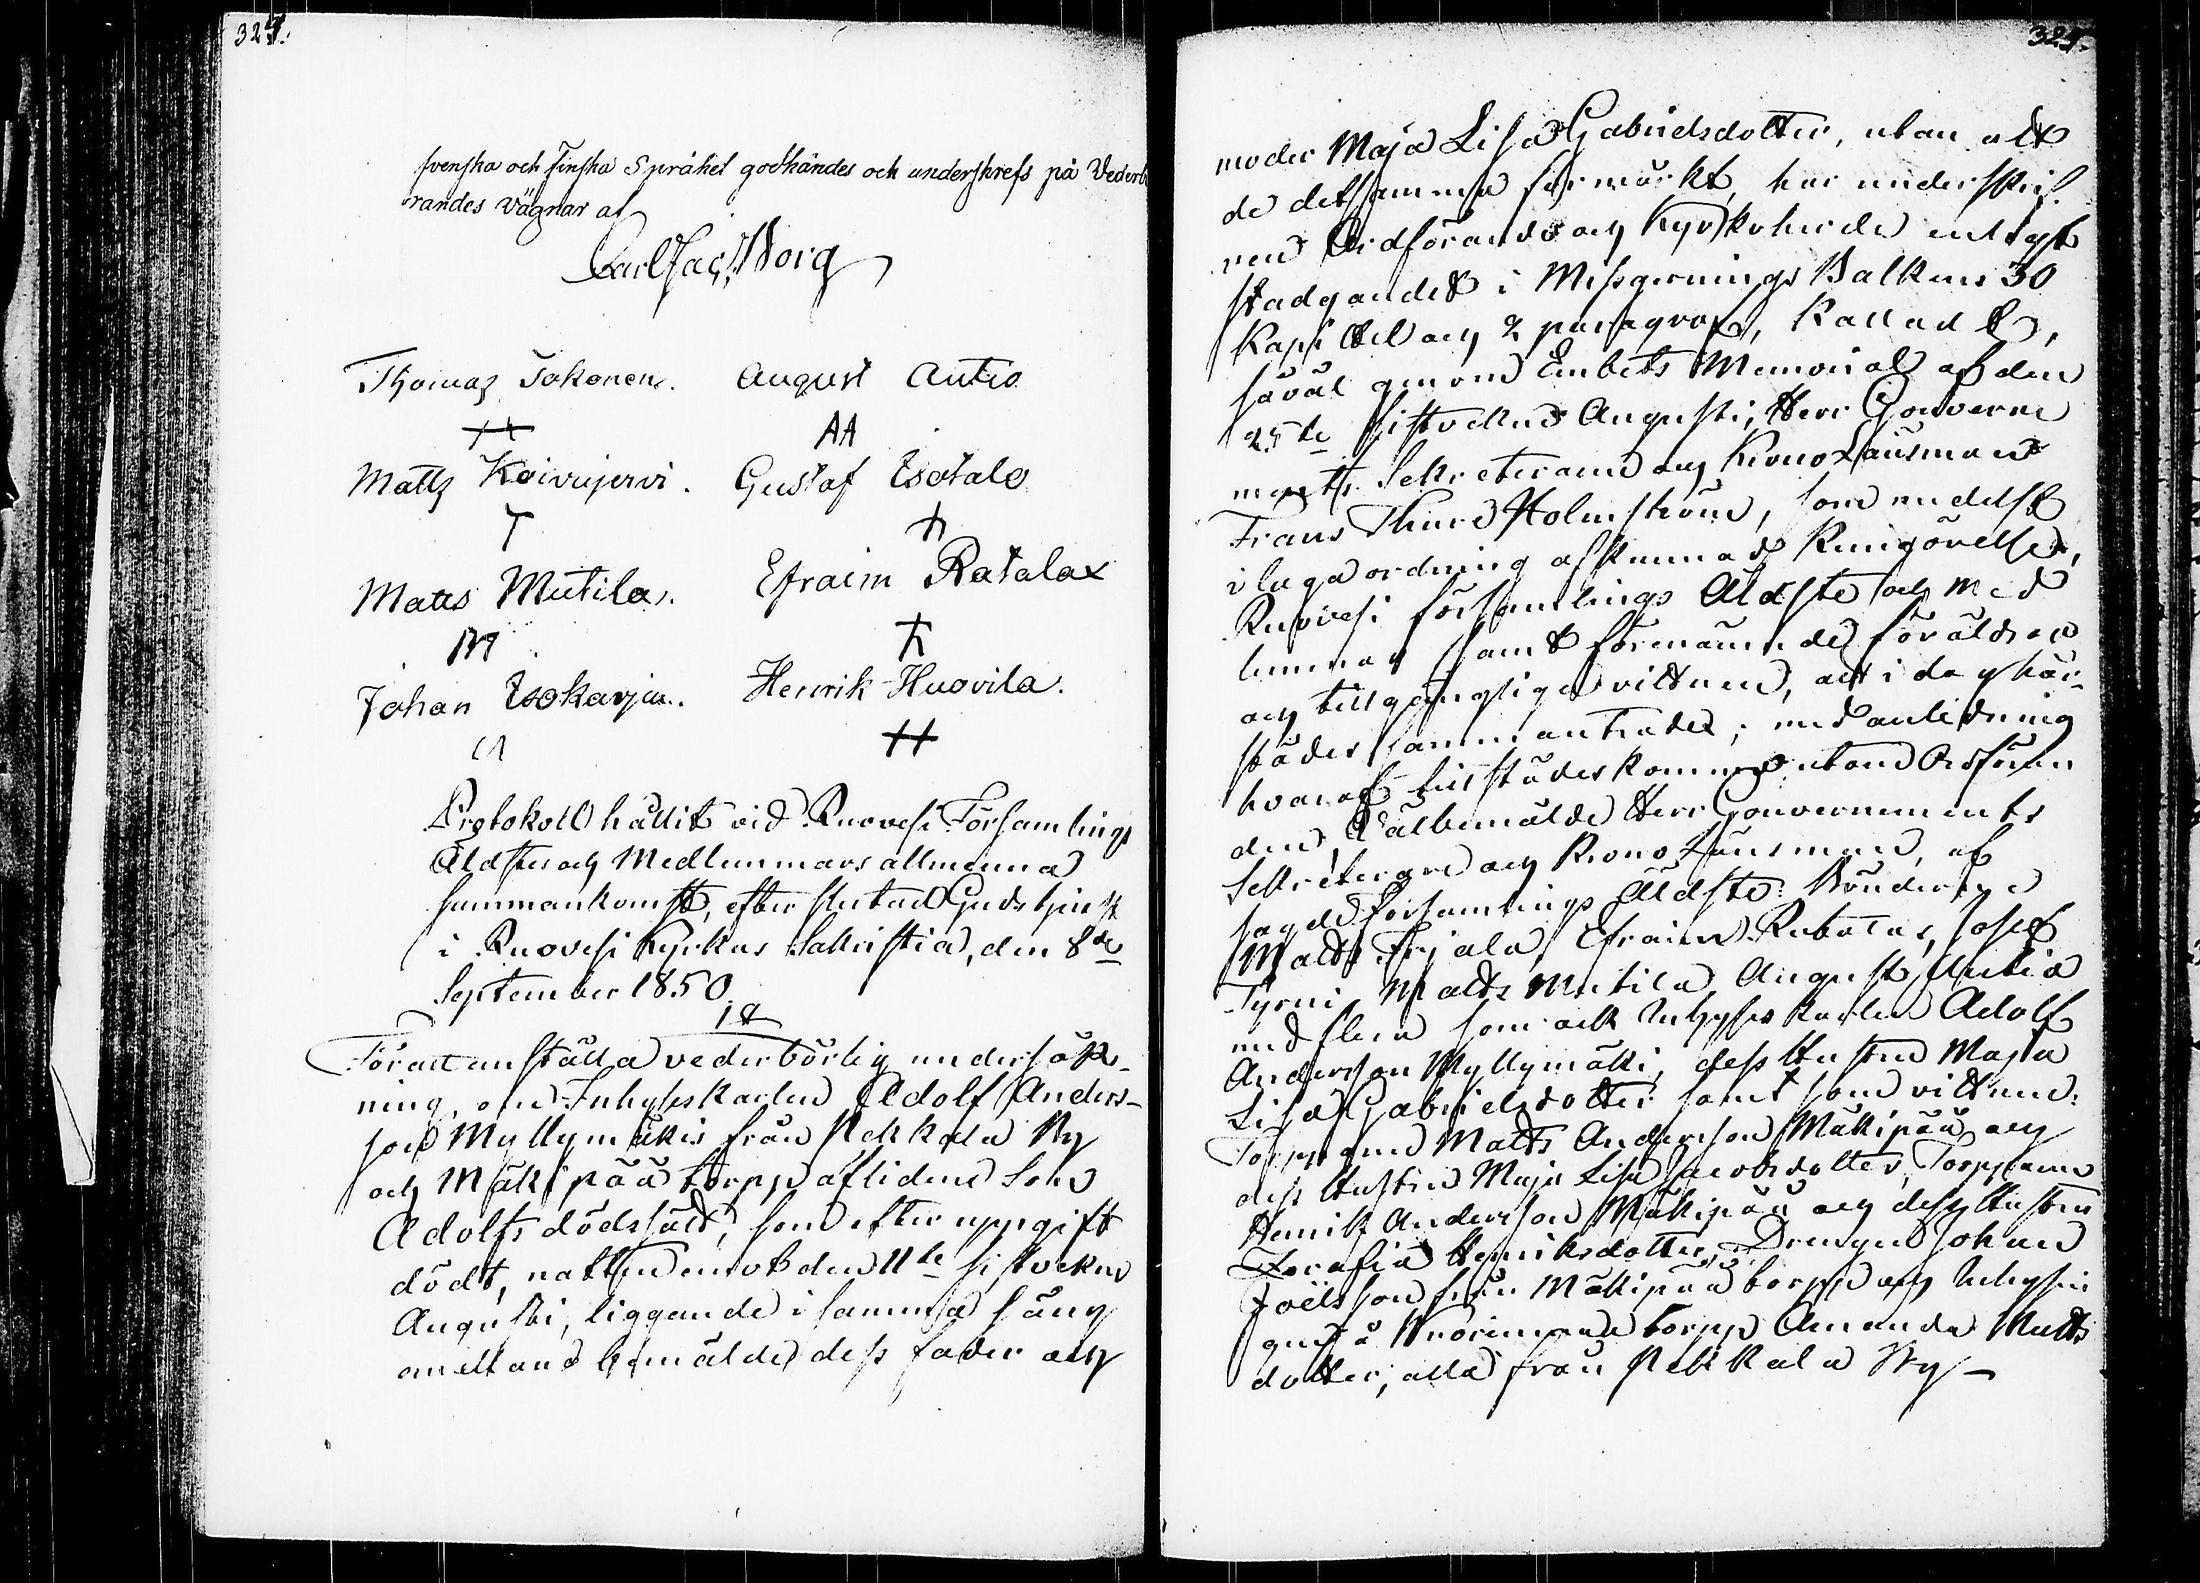 324.
svenska och Finska Språket godkändes och underskrefs på Vederbö
randes Vägnar af
Carl Jac. Borg
Thomas Jokonen. August Autio
AA
Matts Koivujervi. Gustaf Isotalo
Matts Mutila. Efraim Ratalax
M
Johan Isokarju. Henrik Huovila.
Protokoll hållit vid Ruovesi Församlings
Äldstes och Medlemmars allmenna
sammankomst, efter slutad Gudstjenst
i Ruovesi Kyrkas Sakristia, den 8de
September 1850
1 §
För att anställa vederbörlig undersök-
ning, om Inhyseskarlen Adolf Anders-
son Myllymäkis från Pekkala By
och Mäkipää torpp aflidne Son
Adolfs dödssätt, som efter uppgift
dödt, natten emot den 11te sistvekne
Augusti, liggande i samma säng
emellan bemälde dess fader och
325.
moder Maja Lisa Gabrielsdotter, utan att
de detsamma förmärkt, har underskrif-
ven Ordförande och Kyrkoherde enligt
stadgandet i Missgernings Balkens 30
Kapittel och 2 paragraf, Kallad t,
såväl genom Embets Memorial af den
25te sistvekne Augusti, Herr Gouverne
ments Sekreteraren och Krono Länsman
Frans Thure Holmström, som medelst
i laga ordning afkunnad Kungörelse,
Ruovesi församlings Äldste och Med
lemmar samt förenämnde föräldrar
och tillgänglige vittnen, att i dag här-
städes sammanträda; med anledning
hvaraf tillstädeskommo utom Ordföran
den, Välbemälde Herr Gouvernements
Sekreterare och Krono Länsman, af
sagde Församlings Äldste: Bönderne
Matts Frjala, Efraim Rubatas, Josef
Tyrni, Matts Mutila, August Autio
med flera som ock Inhyses karlen Adolf
Andersson Myllymäki, dess Hustru Maja
Lisa Gabrielsdotter samt som vittnen:
Torpparen Matts Andersson Mäkipää och
dess Hustru Maja Lisa Jacobsdotter, Torpparen
Henrik Andersson Mäkipää och dess Hustru
Serafia Henriksdotter, Drengen Johan
Joëlsson från Mäkipää torpp och Inhyses
qvinna torpp Amanda Matts
dotter, alla från Pekkala By –